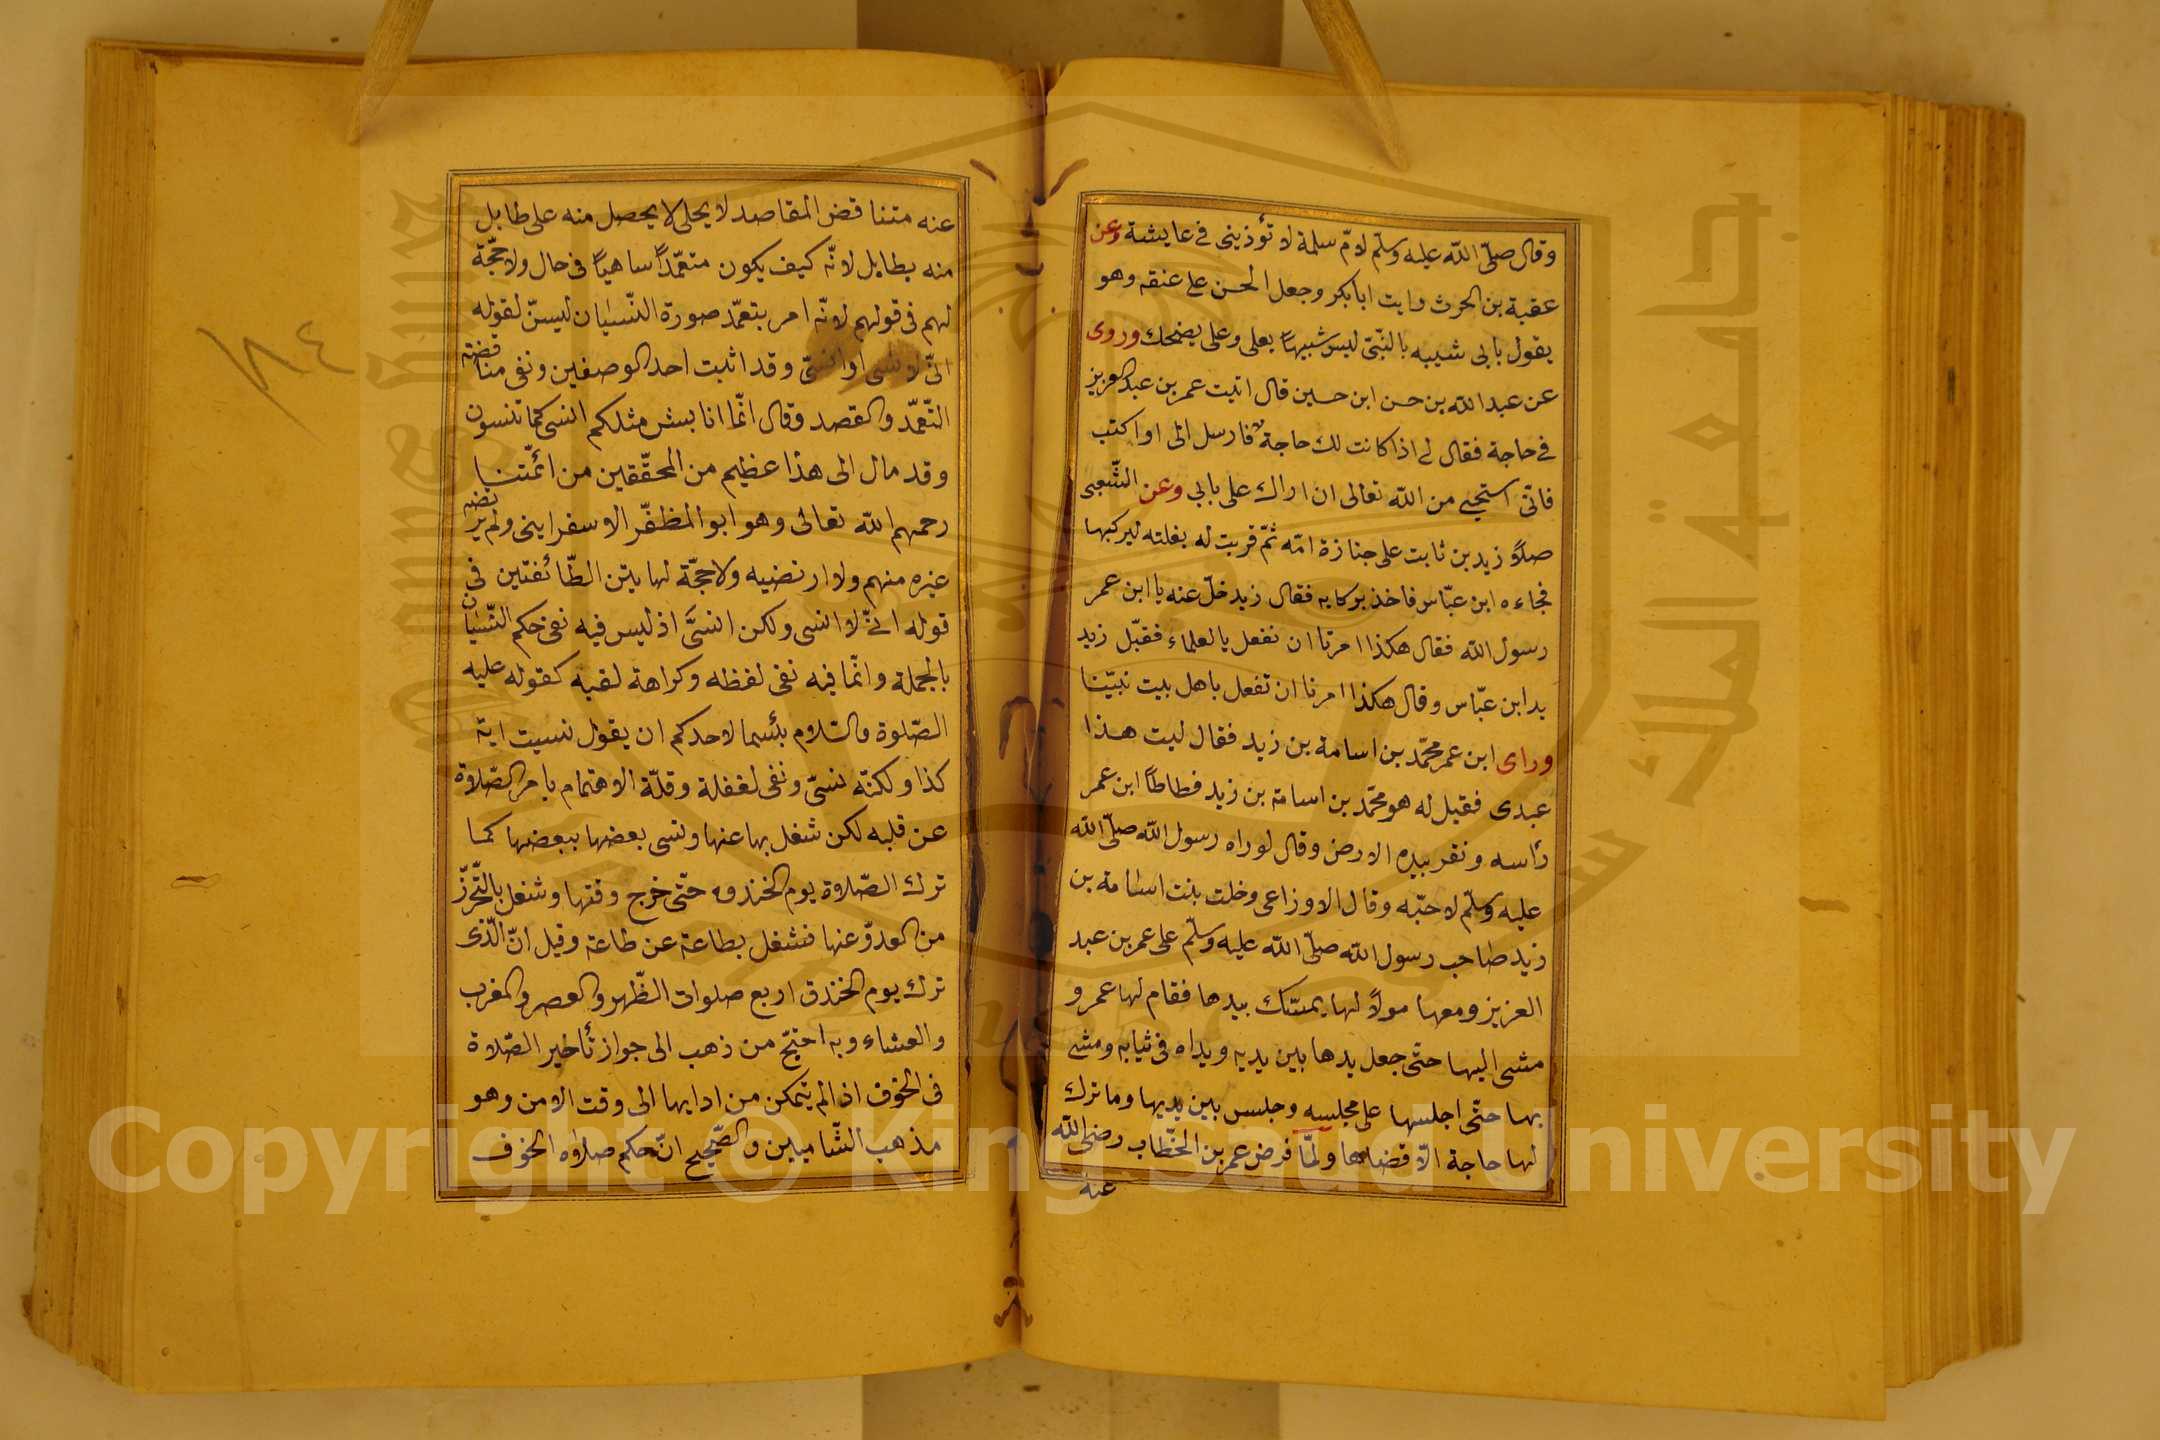 وقال صلّى الله عليه وسلّم لامّ سلمة لا تؤذينى فى عايشة وعن
عقبة بن الحرث رايت ابا بكر وجعل الحسن على عنقه وهو
يقول بابى شبيه بالنّبىّ ليس شبيهاً بعلى وعلى يضحك وروى
عن عبد الله بن حسن ابن حسين قال اتيت عمر بن عبد العزيز
فى حاجة فقال لى اذا كانت لك حاجة فارسل الى او اكتب
فانّى استحيى من الله تعالى ان اراك على بابى وعن الشّعبى
صلّى زيد بن ثابت على جنازة امّه ثمّ قربت له بغلته ليركبها
فجاءه ابن عبّاس فاخذ بركابه فقال زيد خلّ عنه يا ابن عمر
رسول الله فقال هكذا امرنا ان نفعل بالعلماء فقبّل زيد
يد ابن عبّاس وقال هكذا امرنا ان نفعل باهل بيت نبيّنا
وراى ابن عمر محمّد بن اسامة بن زيد فقال ليت هذا
عبدى فقيل له هو محمّد بن اسامة بن زيد فطاطأ ابن عمر
رأسه ونقر بيده الارض وقال لو راه رسول الله صلّى الله
عليه وسلّم لاحبّه وقال الاوزاعى دخلت بنت اسامة بن
زيد صاحب رسول الله صلّى الله عليه وسلّم على عمر بن عبد
العزيز ومعها مولاً لها يمسك بيدها فقام لها عمر و
مشى اليها حتّى جعل يدها بين يديه ويداه فى ثيابه ومشى
بها حتّى اجلسها على مجلسه وجلس بين يديها وما ترك
لها حاجة الّا قضاها ولمّا فرض عمر بن الخطّاب رضى الله
عنه
عنه متناقض المقاصد لا يحلى لا يحصل منه على طايل
منه بطايل لانّه كيف يكون متعمّداً ساهياً فى حال ولا حجّة
لهم فى قولهم لانّه امر بتعمّد صورة النّسيان ليسنّ لقوله
انّى لا نسى او انسّى وقد اثبت احد الوصفين ونفى مناقضته
التّعمّد والقصد وقال انّما انا بشر مثلكم انسى كما تنسون
وقد مال الى هذا عظيم من المحقّقين من ائمّتنا
رحمهم الله تعالى وهو ابو المظفّر الاسفراينى ولم يرتضه
غيره منهم ولا ارتضيه ولا حجّة لهايتن الطّائفتين فى
قوله انّى لا انسى ولكن انسىّ اذ ليس فيه نفى حكم النّسيان
بالجملة وانّما فيه نفى لفظه وكراهة لقبه كقوله عليه
الصّلوة والسّلام بئسما لاحدكم ان يقول نسيت اية
كذا ولكنّه نسىّ ونفى لغفلة وقلّة الاهتمام بامر الصّلاة
عن قلبه لكن شغل بها عنها ونسى بعضها ببعضها كما
ترك الصّلاوة يوم الخندق حتّى خرج وقتها وشغل بالتّحرّز
من العدوّ عنها فشغل بطاعة عن طاعة وقيل انّ الّذى
ترك يوم الخندق اربع صلوات الظّهر والعصر والمغرب
والعشاء وبه احتجّ من ذهب الى جواز تأخير الصّلاة
فى الخوف اذ الم يتمكن من ادايها الى وقت الامن وهو
مذهب الشّاميين والصّحيح انّ حكم صلاوه الخوف
٨٤
جامعة الملك سعود
King Saud University
Copyright © King Saud University